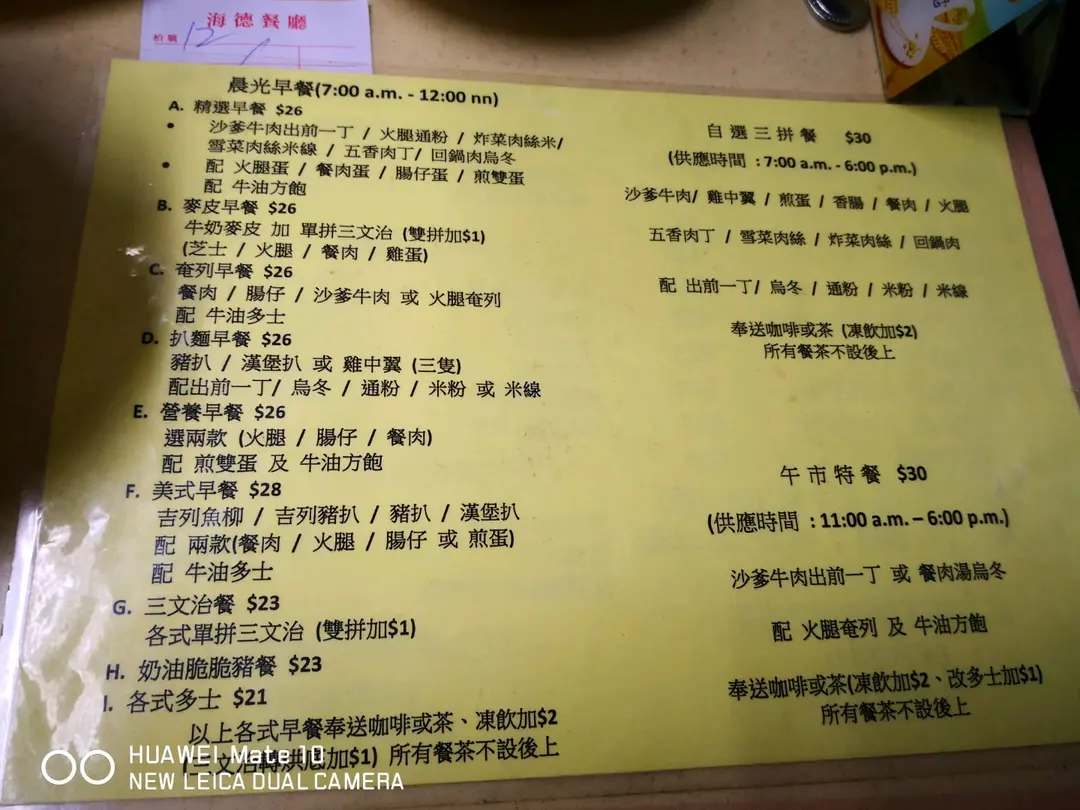 海德餐廳
枱號 12
晨光早餐(7:00 a.m. - 12:00 nn)
A. 精選早餐 $26
• 沙爹牛肉出前一丁 / 火腿通粉 / 炸菜肉絲米/
雪菜肉絲米線 / 五香肉丁/ 回鍋肉烏冬
• 配 火腿蛋 / 餐肉蛋 / 腸仔蛋 / 煎雙蛋
配 牛油方飽
B. 麥皮早餐 $26
牛奶麥皮 加 單拼三文治 (雙拼加$1)
(芝士 / 火腿 / 餐肉 / 雞蛋)
C. 奄列早餐 $26
餐肉 / 腸仔 / 沙爹牛肉 或 火腿奄列
配 牛油多士
D. 扒麵早餐 $26
豬扒 / 漢堡扒 或 雞中翼 (三隻)
配出前一丁/ 烏冬 / 通粉 / 米粉 或 米線
E. 營養早餐 $26
選兩款 (火腿 / 腸仔 / 餐肉)
配 煎雙蛋 及 牛油方飽
F. 美式早餐 $28
吉列魚柳 / 吉列豬扒 / 豬扒 / 漢堡扒
配 兩款(餐肉 / 火腿 / 腸仔 或 煎蛋)
配 牛油多士
G. 三文治餐 $23
各式單拼三文治 (雙拼加$1)
H. 奶油脆脆豬餐 $23
I. 各式多士 $21
以上各式早餐奉送咖啡或茶、凍飲加$2
(三文治轉烘底加$1) 所有餐茶不設後上
自選三拼餐 $30
(供應時間 : 7:00 a.m. - 6:00 p.m.)
沙爹牛肉/ 雞中翼 / 煎蛋 / 香腸 / 餐肉 / 火腿
五香肉丁 / 雪菜肉絲 / 炸菜肉絲 / 回鍋肉
配 出前一丁/ 烏冬 / 通粉 / 米粉 / 米線
奉送咖啡或茶 (凍飲加$2)
所有餐茶不設後上
午市特餐 $30
(供應時間 : 11:00 a.m. – 6:00 p.m.)
沙爹牛肉出前一丁 或 餐肉湯烏冬
配 火腿奄列 及 牛油方飽
奉送咖啡或茶(凍飲加$2、改多士加$1)
所有餐茶不設後上
HUAWEI Mate 10
NEW LEICA DUAL CAMERA